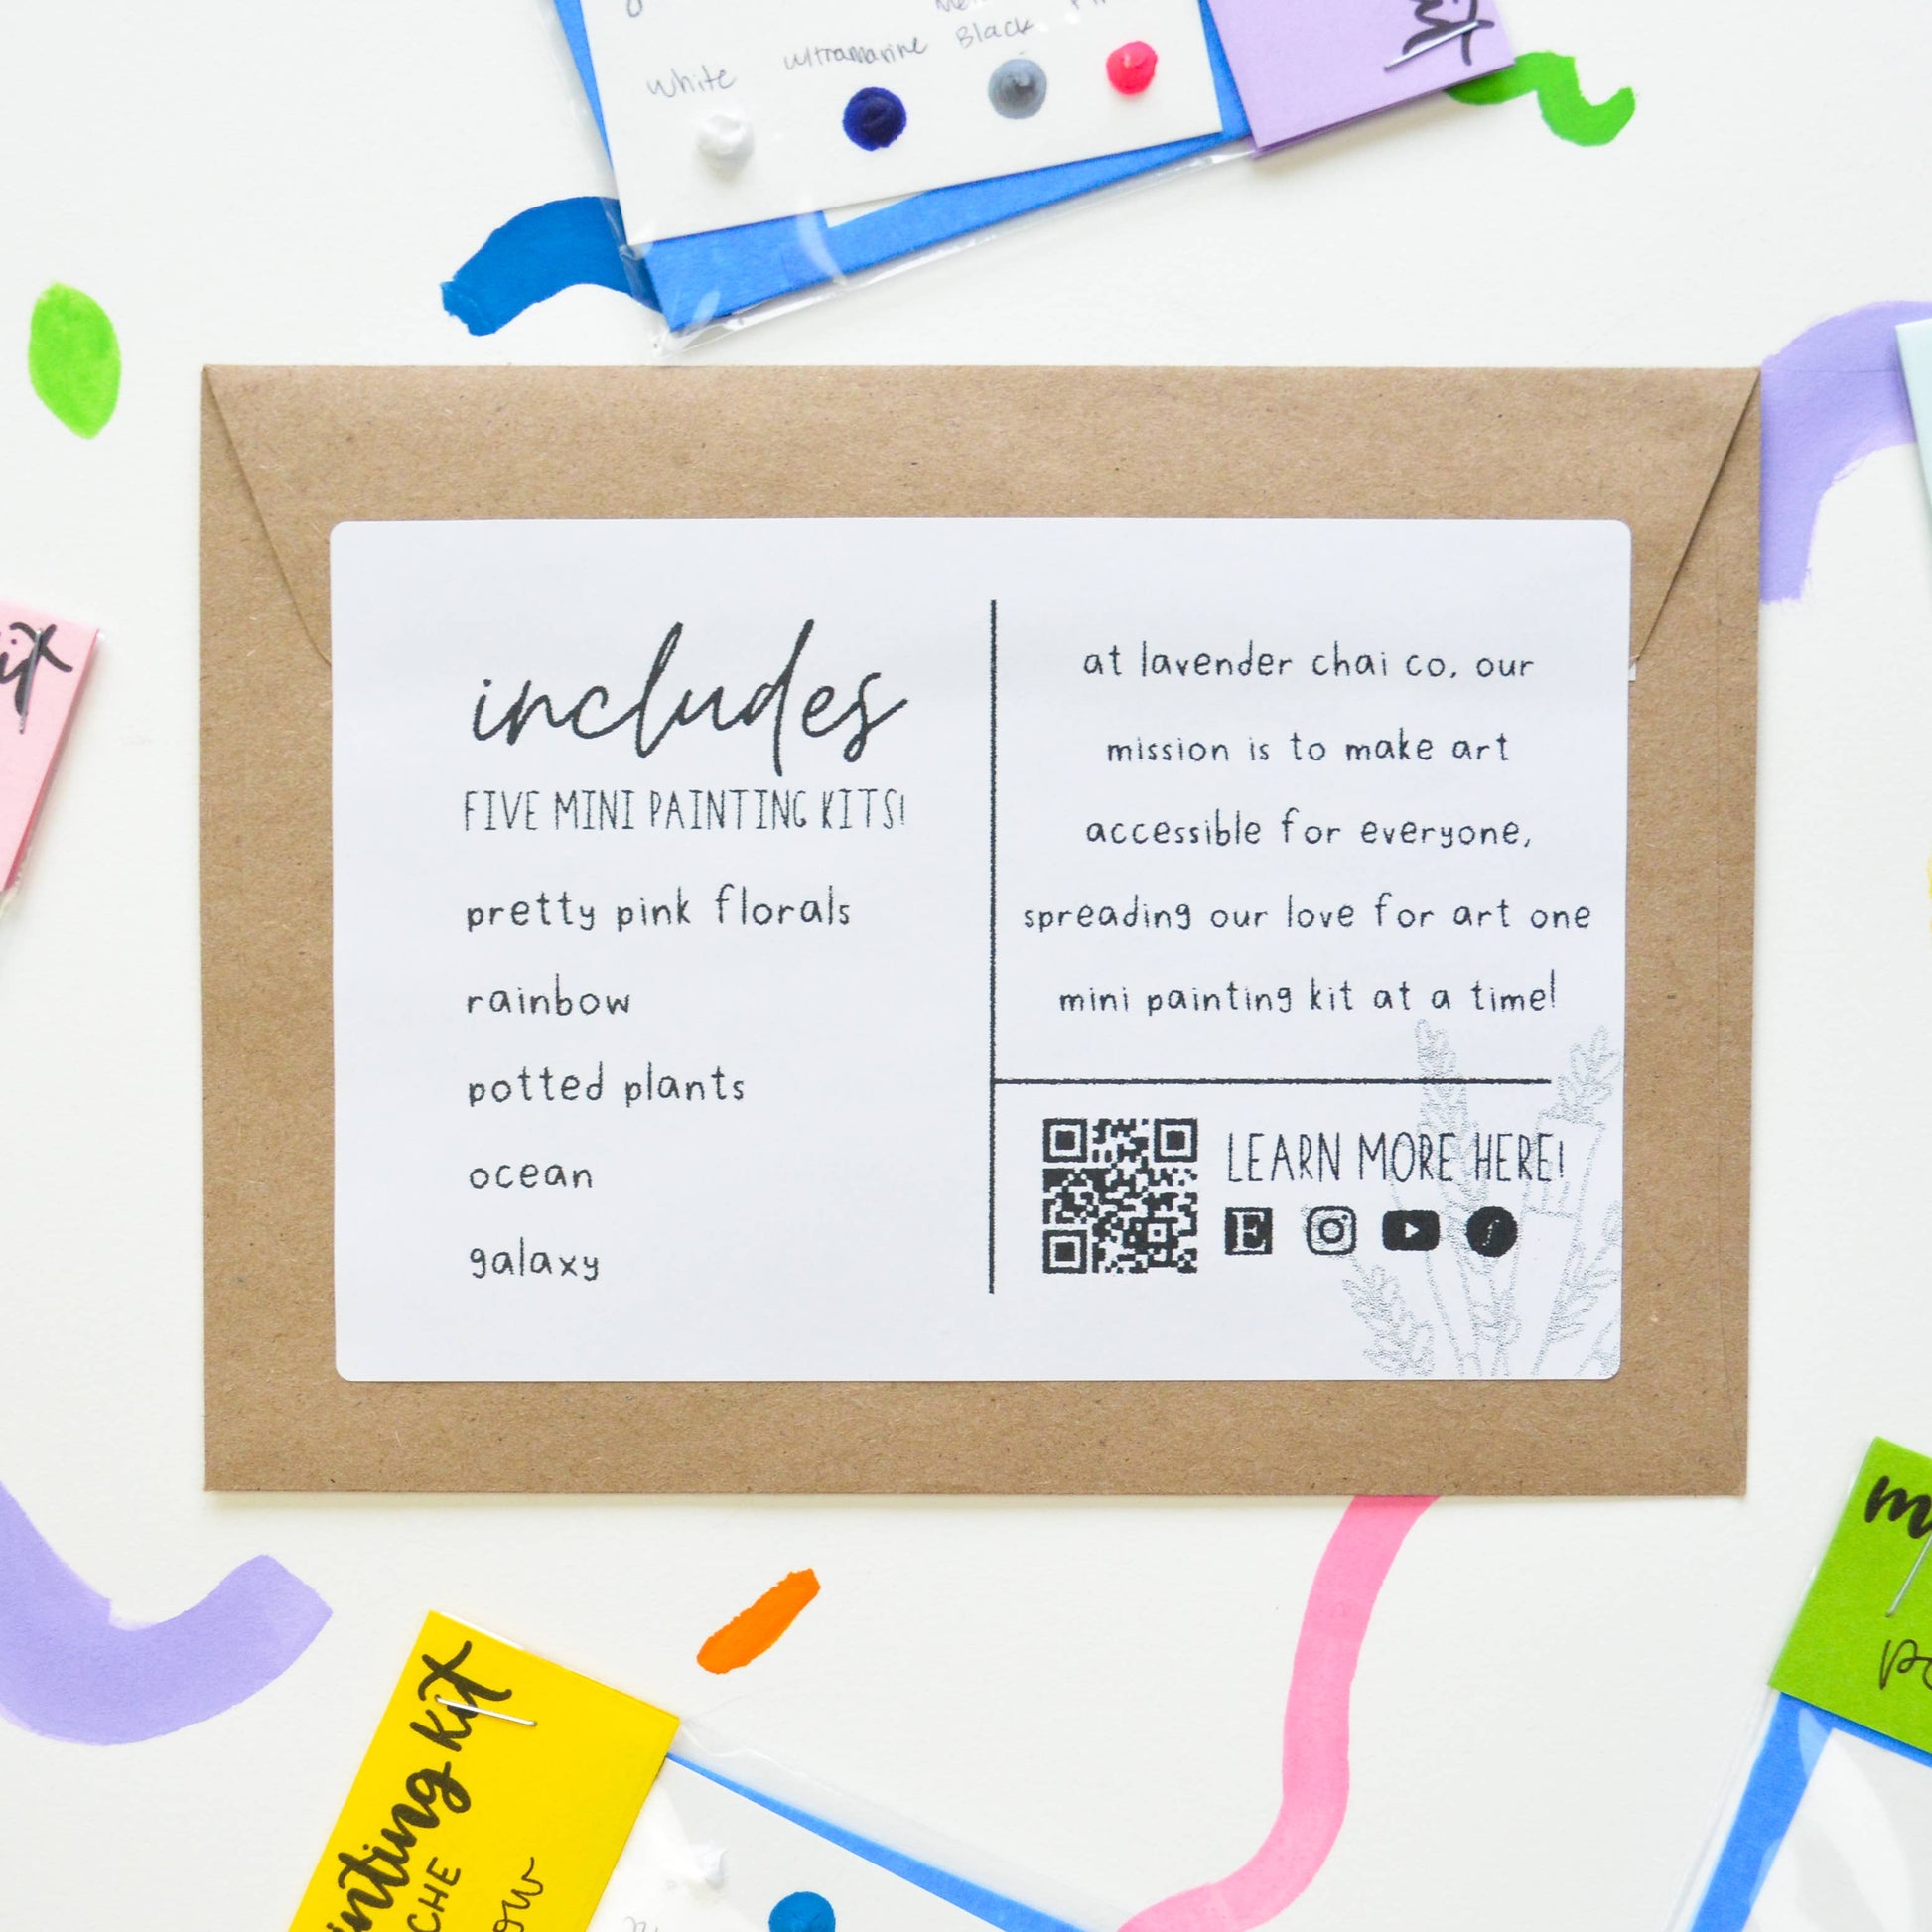 White
Ultramarine
Black
includes
FIVE MINI PAINTING KITS!
pretty pink florals
rainbow
potted plants
ocean
galaxy
at lavender chai co, our
mission is to make art
accessible for everyone,
spreading our love for art one
mini painting kit at a time!
LEARN MORE HERE!
E
kit